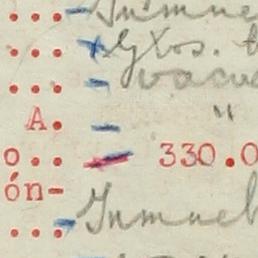 ... Inmue
... Gtos. t
... vacu
A. "
o .. 330.0
ón-
... Inmueb